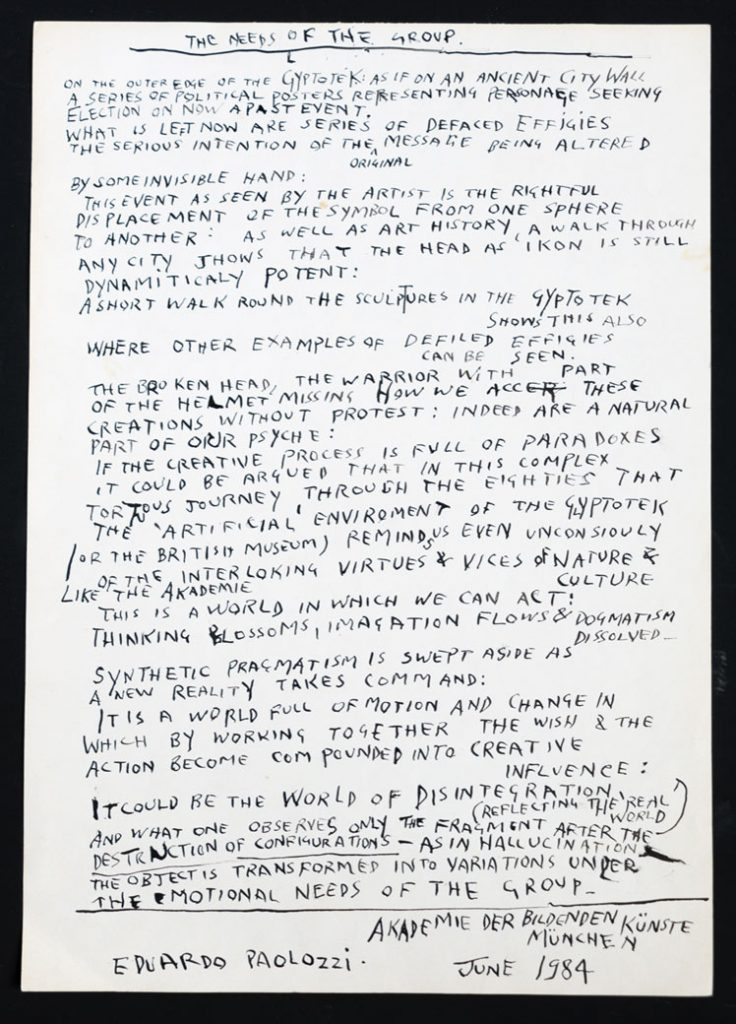 THE NEEDS OF THE GROUP.
ON THE OUTER EDGE OF THE GYPTOTEK: AS IF ON AN ANCIENT CITY WALL
A SERIES OF POLITICAL POSTERS REPRESENTING PERSONAGE SEEKING
ELECTION ON NOW A PAST EVENT.
WHAT IS LEFT NOW ARE SERIES OF DEFACED EFFIGIES
THE SERIOUS INTENTION OF THE MESSAGE BEING ALTERED
ORIGINAL
BY SOME INVISIBLE HAND:
THIS EVENT AS SEEN BY THE ARTIST IS THE RIGHTFUL
DISPLACEMENT OF THE SYMBOL FROM ONE SPHERE
TO ANOTHER: AS WELL AS ART HISTORY, A WALK THROUGH
ANY CITY SHOWS THAT THE HEAD AS 'IKON IS STILL
DYNAMITICALY POTENT:
A SHORT WALK ROUND THE SCULPTURES IN THE GYPTOTEK
SHOWS THIS ALSO
WHERE OTHER EXAMPLES OF DEFILED EFFIGIES
CAN BE SEEN.
THE BROKEN HEAD, THE WARRIOR WITH PART
OF THE HELMET MISSING HOW WE ACCEP THESE
CREATIONS WITHOUT PROTEST: INDEED ARE A NATURAL
PART OF OUR PSYCHE:
IF THE CREATIVE PROCESS IS FULL OF PARADOXES
IT COULD BE ARGUED THAT IN THIS COMPLEX
TORTOUS JOURNEY THROUGH THE EIGHTIES THAT
THE 'ARTIFICIAL' ENVIROMENT OF THE GLYPTOTEK
(OR THE BRITISH MUSEUM) REMINDS US EVEN UNCONSIOULY
OF THE INTERLOKING VIRTUES & VICES OF NATURE &
CULTURE
LIKE THE AKADEMIE
THIS IS A WORLD IN WHICH WE CAN ACT:
THINKING BLOSSOMS, IMAGATION FLOWS & DOGMATISM
DISSOLVED_
SYNTHETIC PRAGMATISM IS SWEPT ASIDE AS
A NEW REALITY TAKES COMMAND:
IT IS A WORLD FULL OF MOTION AND CHANGE IN
WHICH BY WORKING TOGETHER THE WISH & THE
ACTION BECOME COMPOUNDED INTO CREATIVE
INFLUENCE:
IT COULD BE THE WORLD OF DISINTEGRATION,
(REFLECTING THE REAL
WORLD)
AND WHAT ONE OBSERVES ONLY THE FRAGMENT AFTER THE
DESTRUCTION OF CONFIGURATIONS – AS IN HALLUCINATIONS
THE OBJECT IS TRANSFORMED INTO VARIATIONS UNDER
THE EMOTIONAL NEEDS OF THE GROUP_
AKADEMIE DER BILDENDEN KÜNSTE
MÜNCHEN
EDUARDO PAOLOZZI. JUNE 1984